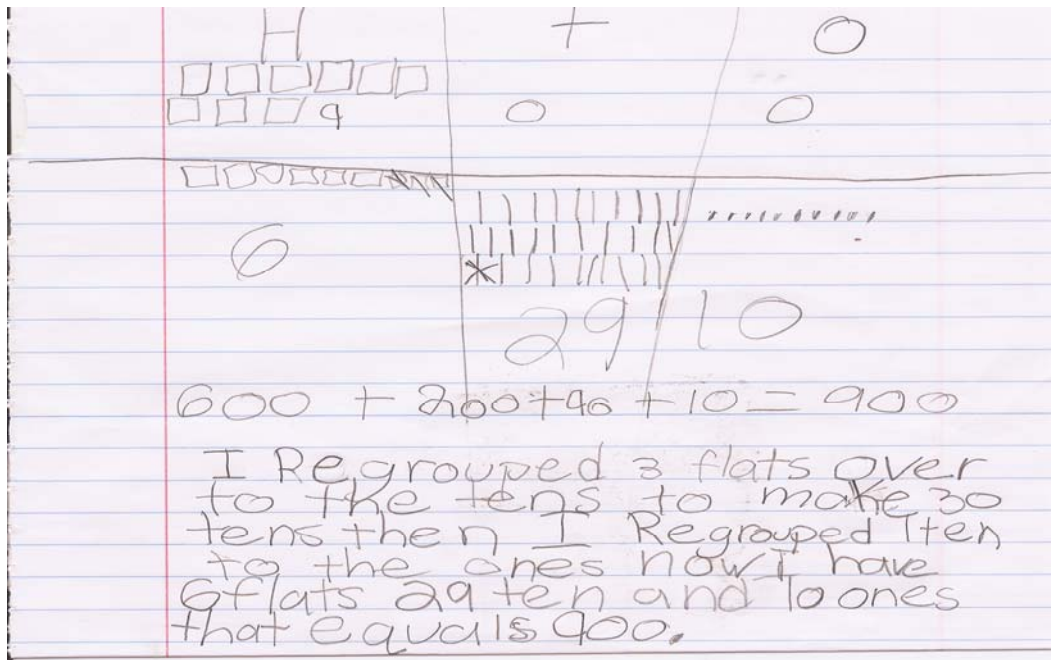 H T O
9 0 0
6
29 10
600 + 200+90 + 10 = 900
I Regrouped 3 flats over
to the tens to make 30
tens then I Regrouped 1ten
to the ones now I have
6flats 29 ten and 10 ones
that equals 900.